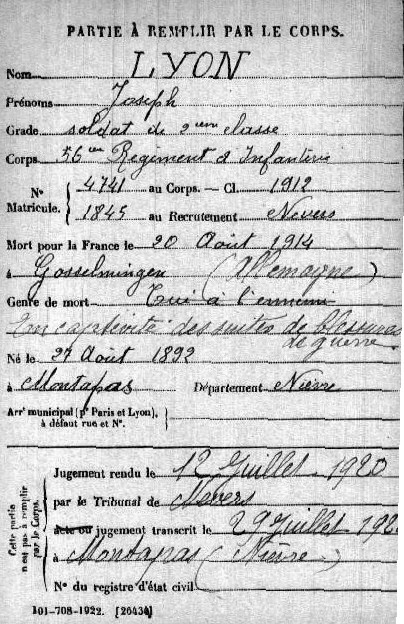 PARTIE À REMPLIR PAR LE CORPS.
Nom LYON
Prénoms Joseph
Grade soldat de 2eme classe
Corps 56eme Régiment d'Infanterie
N° Matricule. { 4741 au Corps. — Cl. 1912
1845 au Recrutement Nevers
Mort pour la France le 20 Août 1914
à Gosselmingen (Allemagne)
Genre de mort Tué à l'ennemi
En captivité des suites de blessures
de guerre
Né le 27 Aout 1892
à Montapas Département Nièvre
Arrt municipal (pr Paris et Lyon), à défaut rue et N°.
Cette partie n'est pas à remplir par le Corps.
Jugement rendu le 12 Juillet 1920
par le Tribunal de Nevers
acte ou jugement transcrit le 29 Juillet 192
à Montapas (Nièvre)
N° du registre d'état civil
101-708-1922. [26434]